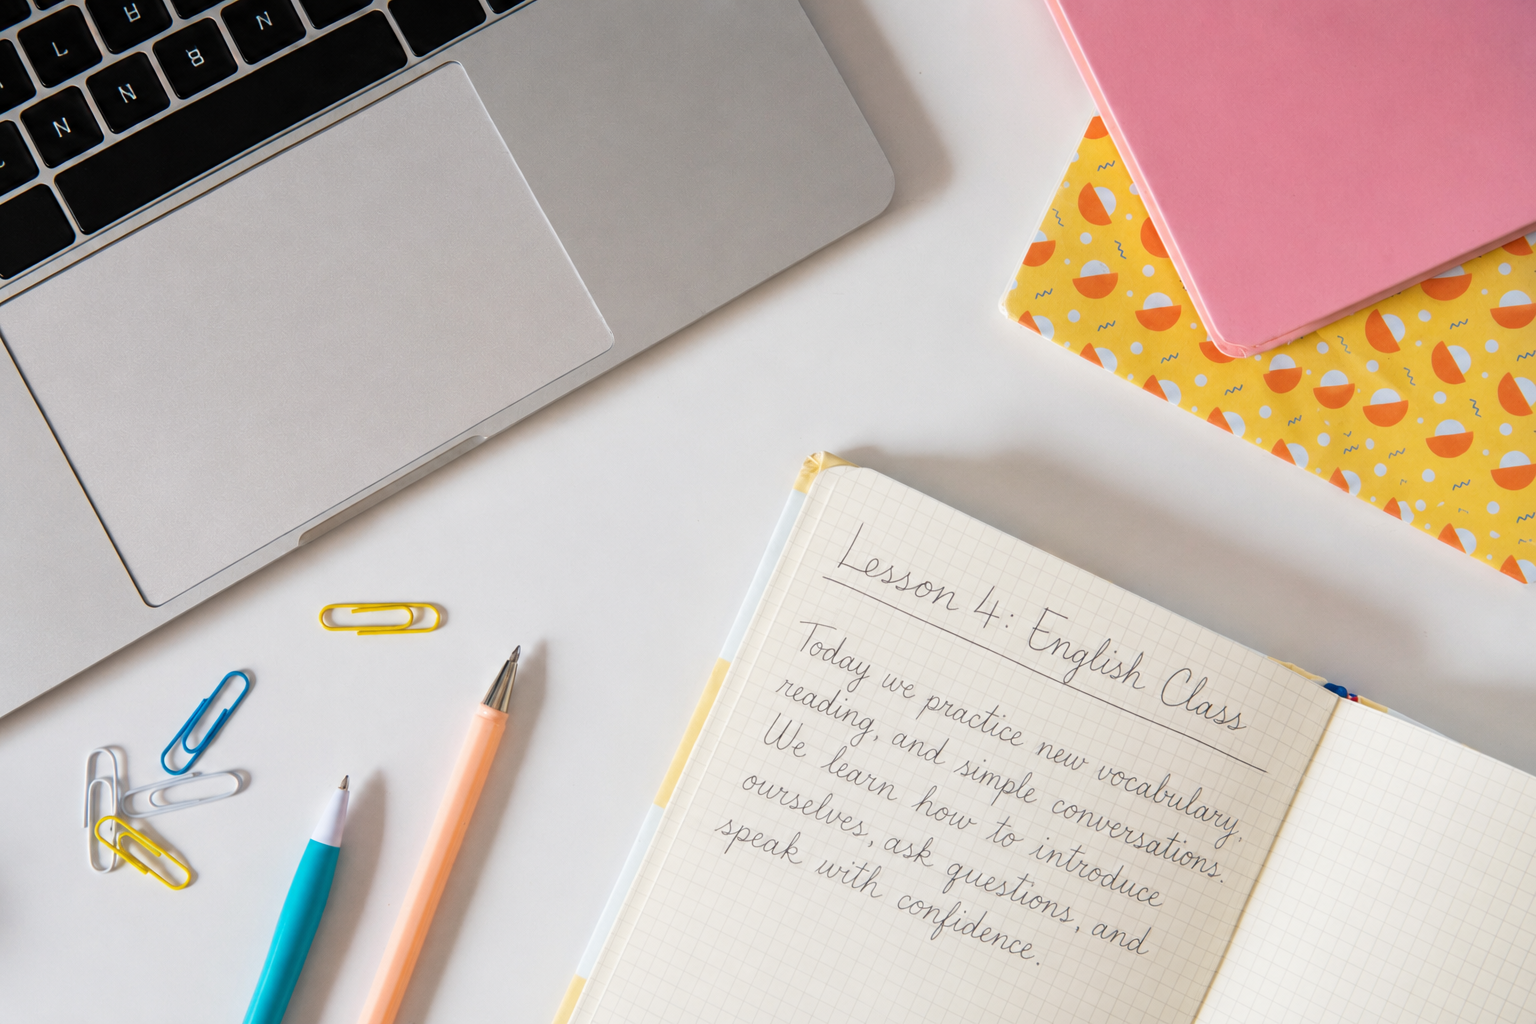 Lesson 4: English Class
Today we practice new vocabulary,
reading, and simple conversations.
We learn how to introduce
ourselves, ask questions, and
speak with confidence.